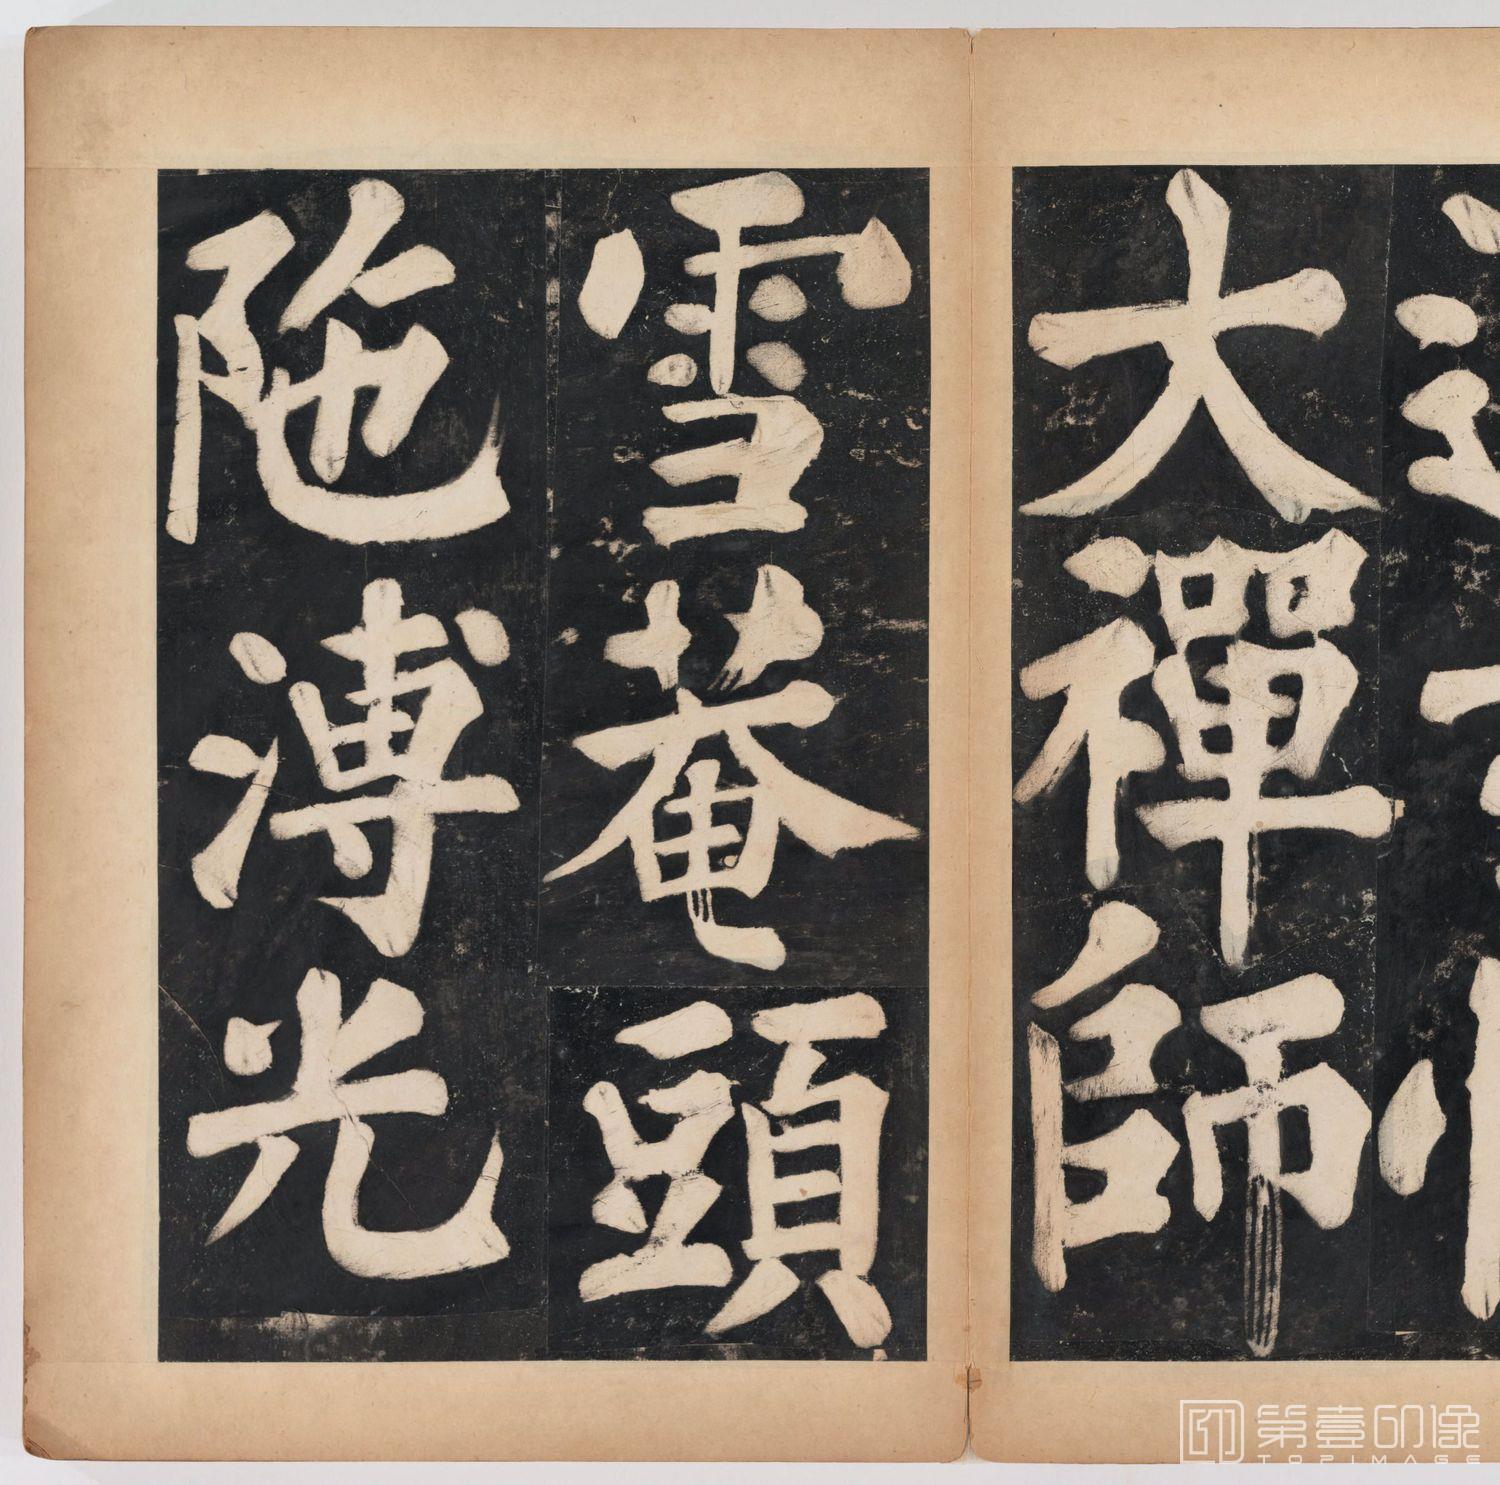 大禪師
雪菴頭
陁溥光
第壹印像
TOPIMAGE